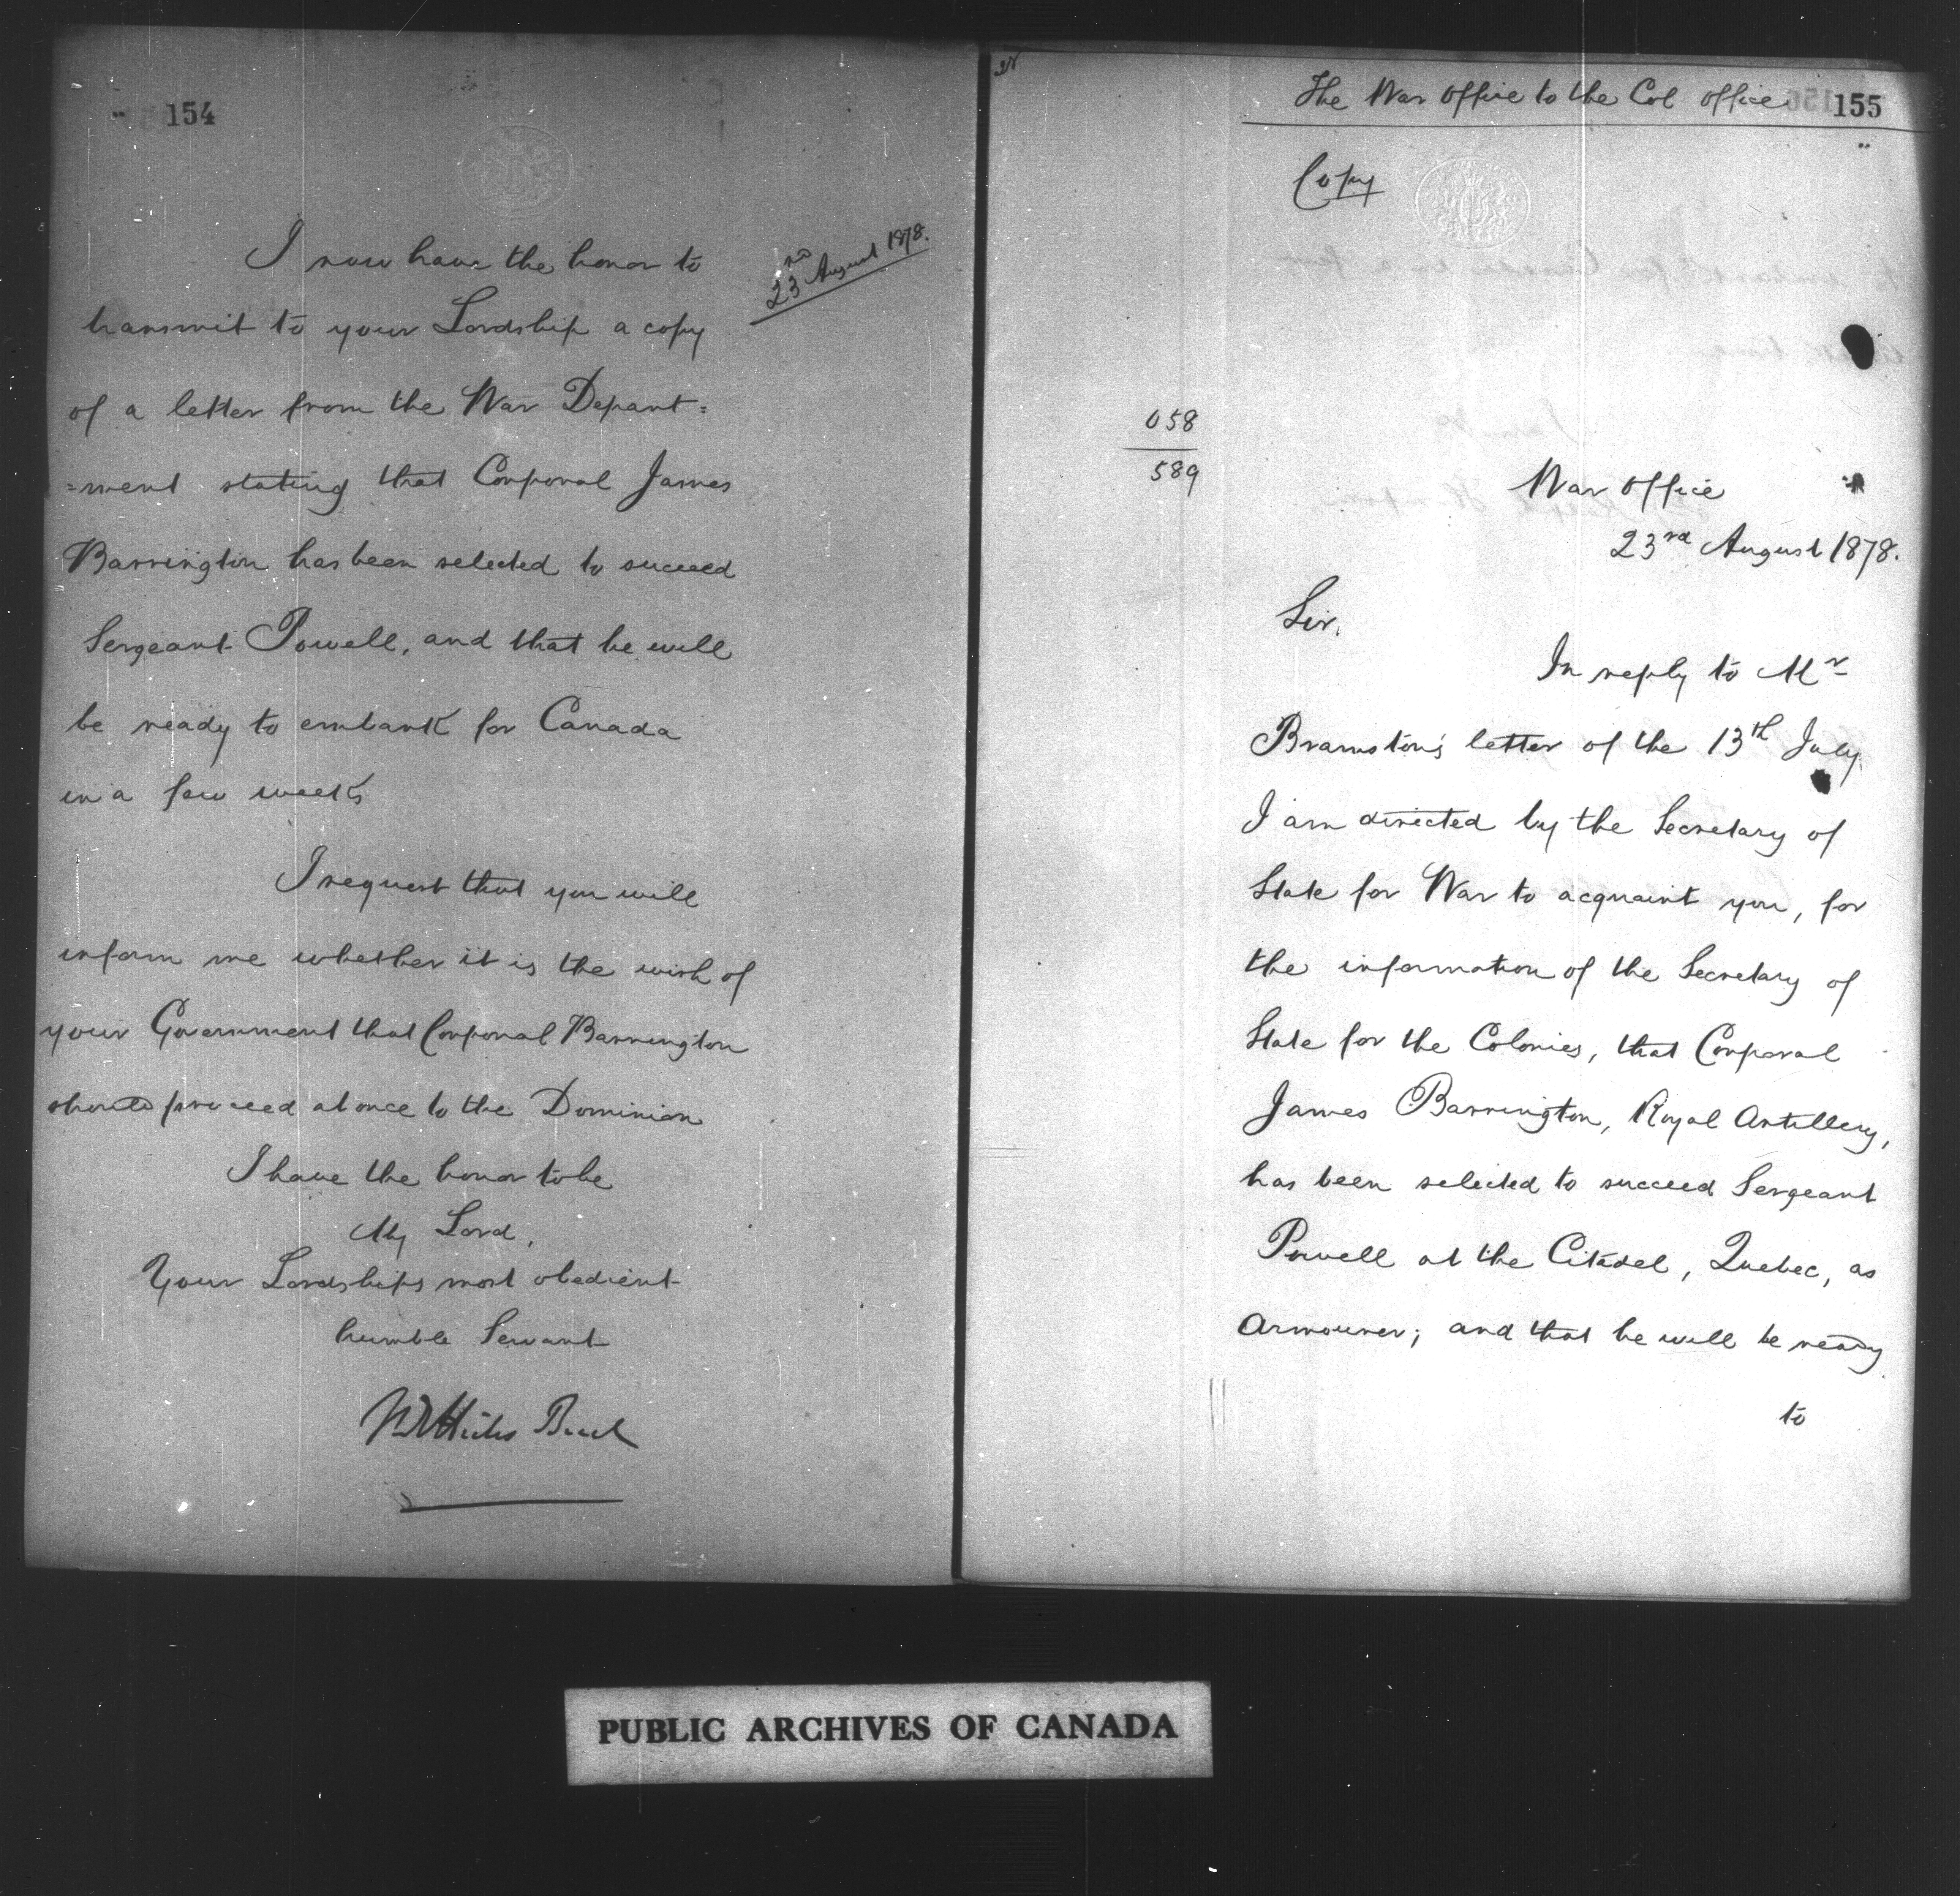 154
I now have the honor to
23rd August 1878.
transmit to your Lordship a copy
of a letter from the War Depart=
=ment stating that Corporal James
Barrington has been selected to succeed
Sergeant Powell, and that he will
be ready to embark for Canada
in a few weeks
I request that you will
inform me whether it is the wish of
your Government that Corporal Barrington
should proceed at once to the Dominion
I have the honor to be
My Lord,
Your Lordships most obedient
humble Servant
M E Hicks Beach
The War Office to the Col Office
155
Copy
058
589
War Office
23rd August 1878.
Sir,
In reply to Mr
Bramston's letter of the 13th July
I am directed by the Secretary of
State for War to acquaint you, for
the information of the Secretary of
State for the Colonies, that Corporal
James Barrington, Royal Artillery,
has been selected to succeed Sergeant
Powell at the Citadel, Quebec, as
Armourer; and that he will be ready
to
PUBLIC ARCHIVES OF CANADA